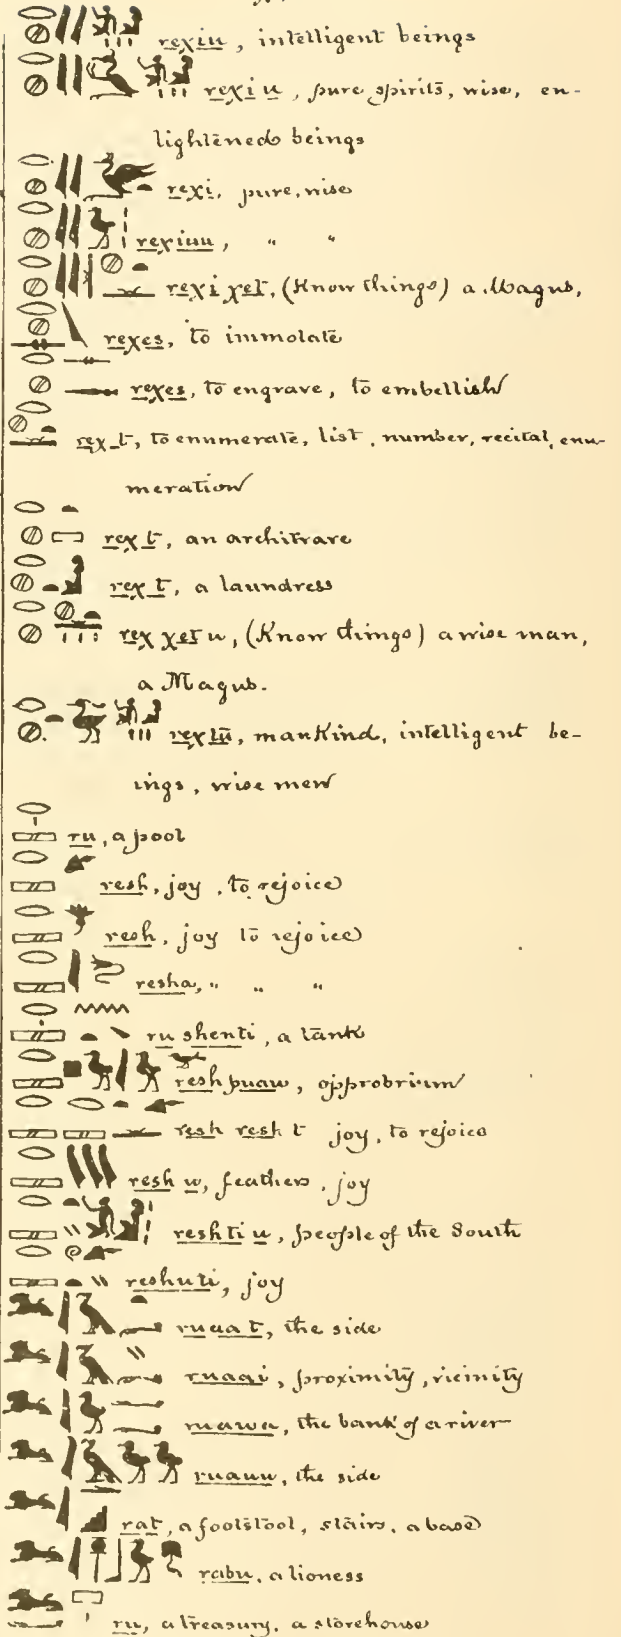 rexiu, intelligent beings
rexi u, pure spirits, wise, en-
lightened beings
rexi, pure, wise
rexiuu, " "
rexi xet, (Know things) a Magus,
rexes, to immolate
rexes, to engrave, to embellish
rex_t, to enumerate, list, number, recital, enu-
meration
rex t, an architrave
rex t, a laundress
rex xet u, (Know things) a wise man,
a Magus.
rextū, mankind, intelligent be-
ings, wise men
ru, a pool
resh, joy, to rejoice
resh, joy to rejoice
resha, " " "
ru shenti, a tank
resh puau, opprobrium
resh resh t joy, to rejoice
resh u, feathers, joy
reshti u, people of the South
reshuti, joy
ruaa t, the side
ruaai, proximity, vicinity
ruaua, the bank of a river
ruauu, the side
rat, a footstool, stairs, a base
rabu, a lioness
ru, a treasury, a storehouse